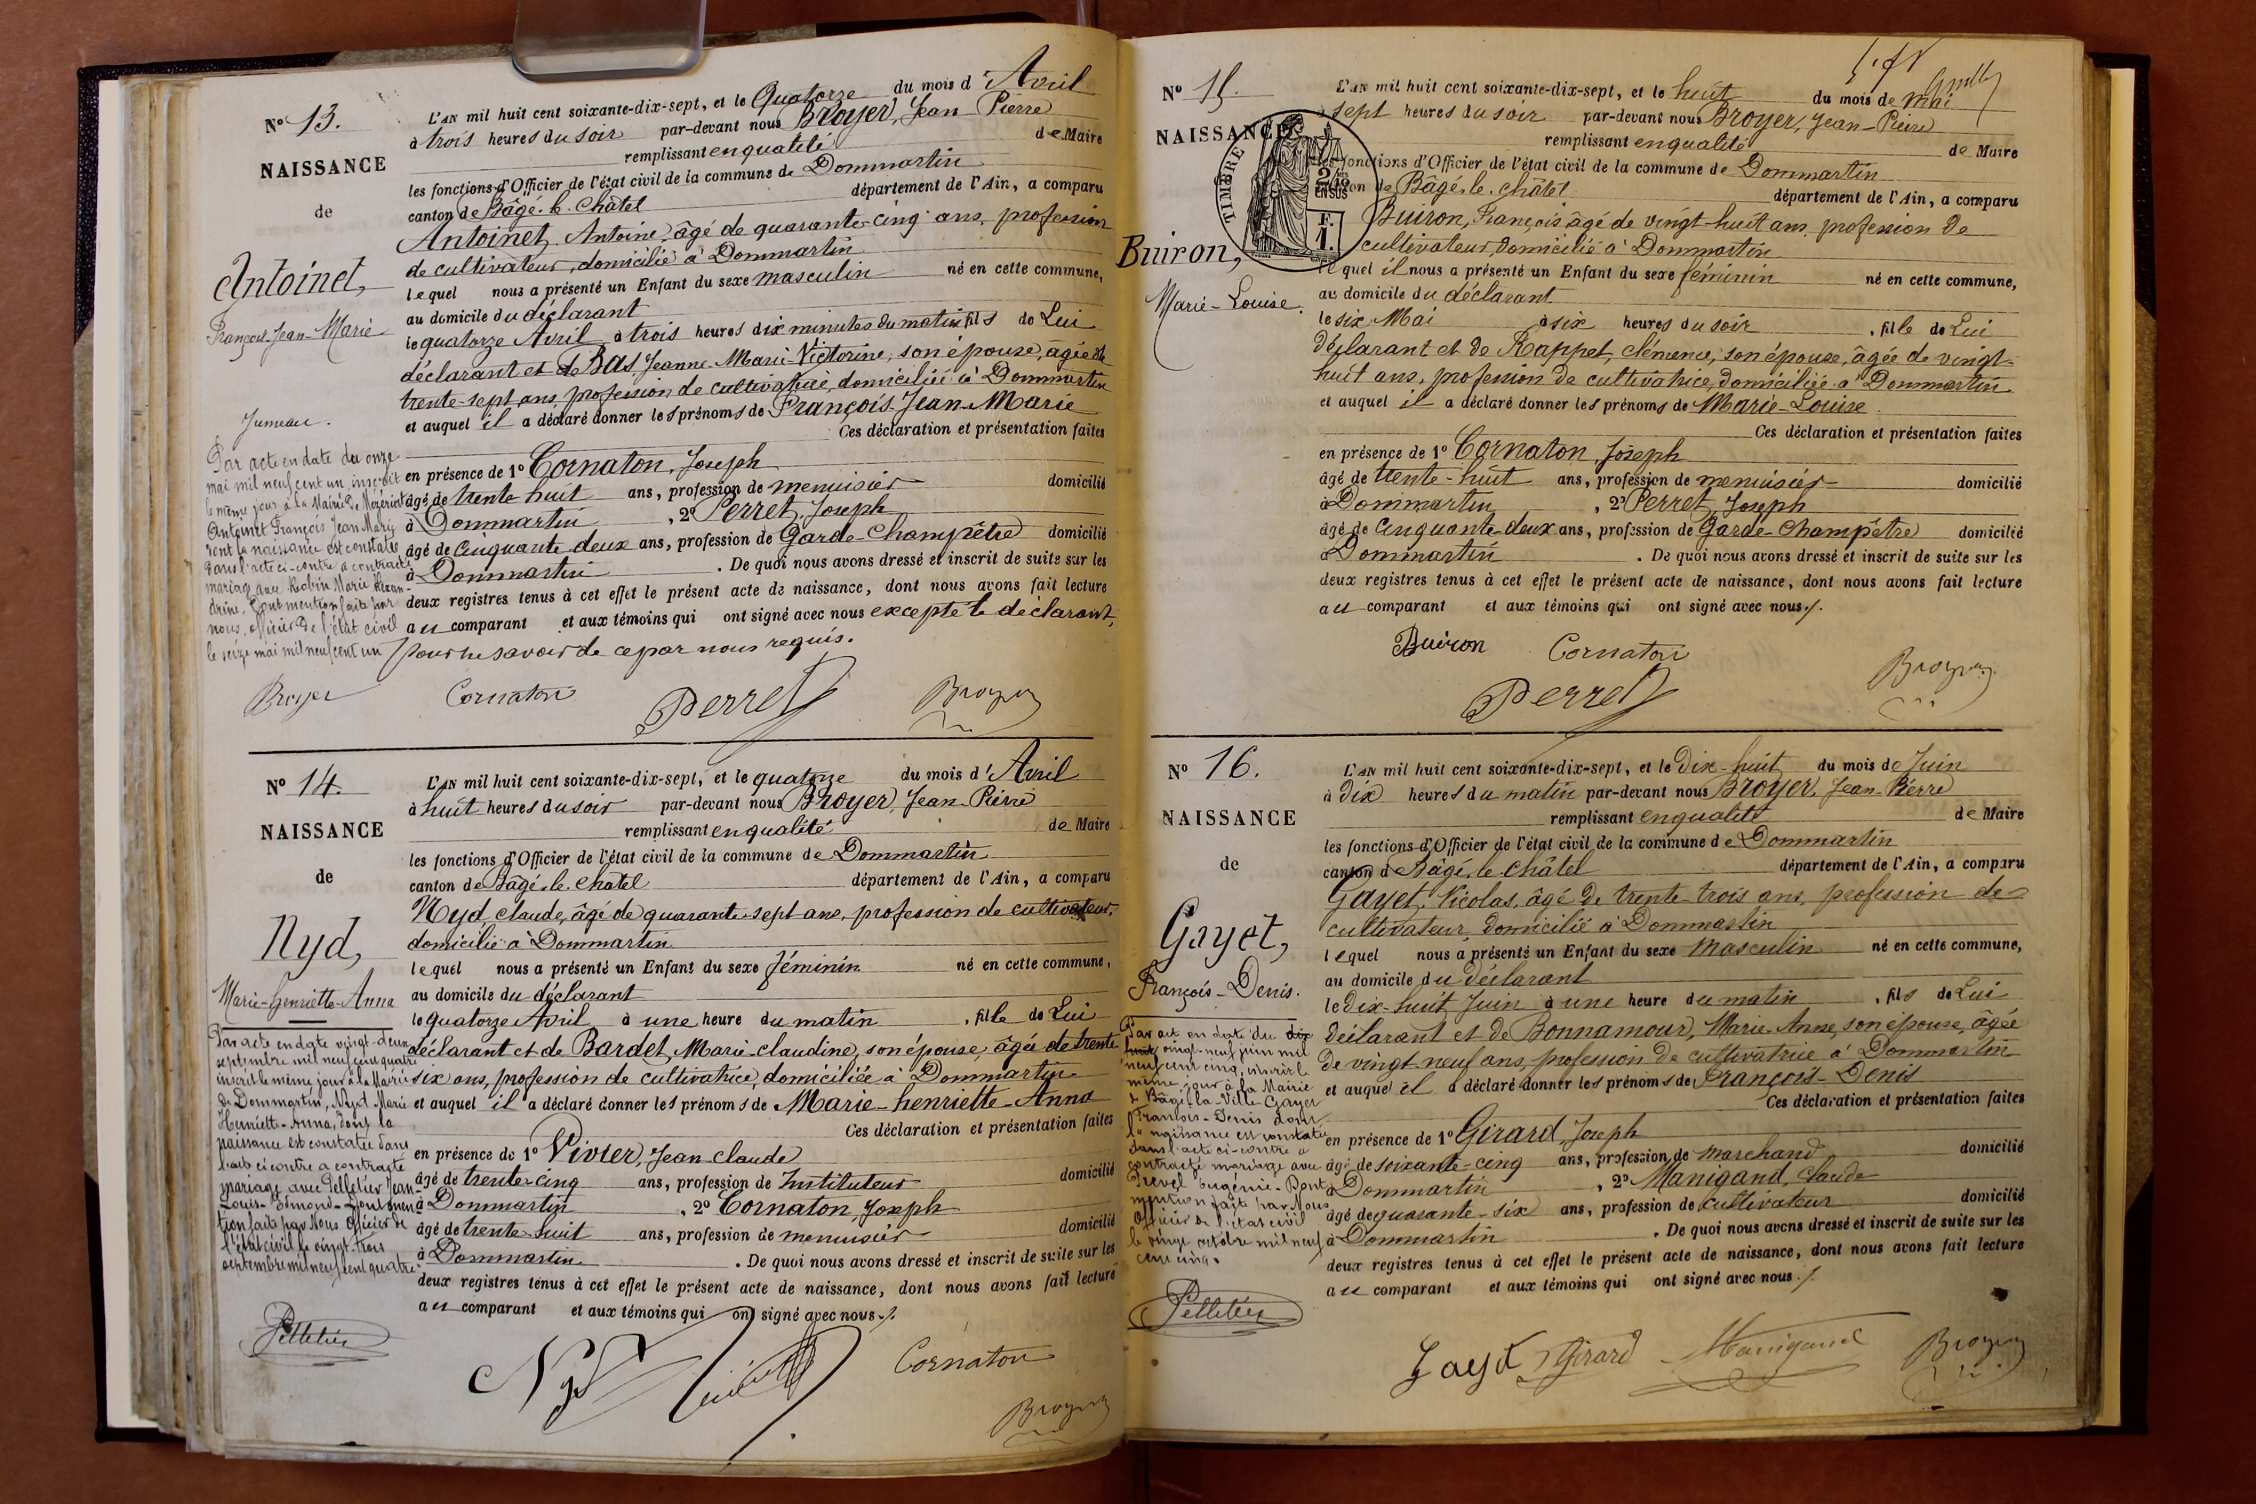 N° 13.
NAISSANCE
de
Antoinet,
François-Jean-Marie
Jumeau.
Par acte en date du onze
mai mil neuf cent un inscrit
le même jour à la Mairie de Mézériat
Antoinet François Jean Marie
dont la naissance est constatée
dans l'acte ci-contre a contracté
mariage avec Robin Marie Alexan-
drine. Dont mention faite par
nous, officier de l'état civil
le seize mai mil neuf cent un
Broyer
L'AN mil huit cent soixante-dix-sept, et le Quatorze du mois d'Avril
à trois heures du soir par-devant nous Broyer, Jean Pierre
remplissant en qualité de Maire
les fonctions d'Officier de l'état civil de la commune de Dommartin
canton de Bâgé-le-Châtel département de l'Ain, a comparu
Antoinet, Antoine, âgé de quarante-cinq ans, profession
de cultivateur, domicilié à Dommartin
lequel nous a présenté un Enfant du sexe masculin né en cette commune,
au domicile du déclarant
le quatorze Avril à trois heures dix minutes du matin fils de Lui
déclarant et de Bas Jeanne-Marie-Victorine, son épouse, âgée de
trente-sept ans, profession de cultivatrice, domiciliée à Dommartin
et auquel il a déclaré donner les prénoms de François-Jean-Marie
Ces déclaration et présentation faites
en présence de 1° Cornaton, Joseph
âgé de trente huit ans, profession de menuisier domicilié
à Dommartin, 2° Perret, Joseph
âgé de cinquante deux ans, profession de Garde-Champêtre domicilié
à Dommartin. De quoi nous avons dressé et inscrit de suite sur les
deux registres tenus à cet effet le présent acte de naissance, dont nous avons fait lecture
au comparant et aux témoins qui ont signé avec nous excepté le déclarant,
pour ne savoir de ce par nous requis.
Cornaton Perret Broyer
N° 14.
NAISSANCE
de
Nyd,
Marie-Henriette-Anna
Par acte en date vingt-deux
septembre mil neuf cent quatre
inscrit le même jour à la Mairie
de Dommartin, Nyd Marie
Henriette-Anna, dont la
naissance est constatée dans
l'acte ci contre a contracté
mariage avec Pelletier Jean-
Louis-Edmond-Dont men
tion faite par Nous Officier de
l'état civil le vingt-trois
septembre mil neuf cent quatre
Pelletier
L'AN mil huit cent soixante-dix-sept, et le quatorze du mois d'Avril
à huit heures du soir par-devant nous Broyer, Jean-Pierre
remplissant en qualité de Maire
les fonctions d'Officier de l'état civil de la commune de Dommartin
canton de Bâgé-le-Châtel département de l'Ain, a comparu
Nyd, claude, âgé de quarante-sept ans, profession de cultivateur,
domicilié à Dommartin
lequel nous a présenté un Enfant du sexe féminin né en cette commune,
au domicile du déclarant
le quatorze Avril à une heure du matin, fille de Lui
déclarant et de Bardet, Marie-claudine, son épouse, âgée de trente
six ans, profession de cultivatrice, domiciliée à Dommartin
et auquel il a déclaré donner les prénoms de Marie-henriette-Anna
Ces déclaration et présentation faites
en présence de 1° Vivier, Jean-claude
âgé de trente-cinq ans, profession de Instituteur domicilié
à Dommartin, 2° Cornaton, Joseph
âgé de trente-huit ans, profession de menuisier domicilié
à Dommartin. De quoi nous avons dressé et inscrit de suite sur les
deux registres tenus à cet effet le présent acte de naissance, dont nous avons fait lecture
au comparant et aux témoins qui ont signé avec nous./.
Nyd Cornaton
Broyer
N° 15.
NAISSANCE
TIMBRE
2/10 EN SUS
F.
1.
Buiron,
Marie-Louise.
L'AN mil huit cent soixante-dix-sept, et le huit du mois de Mai
à sept heures du soir par-devant nous Broyer, Jean-Pierre
remplissant en qualité de Maire
les fonctions d'Officier de l'état civil de la commune de Dommartin
canton de Bâgé-le-châtel département de l'Ain, a comparu
Buiron, François, âgé de vingt-huit ans, profession de
cultivateur, domicilié à Dommartin
lequel il nous a présenté un Enfant du sexe féminin né en cette commune,
au domicile du déclarant
le six Mai à six heures du soir, fille de Lui
déclarant et de Rappet, clémence, son épouse, âgée de vingt-
huit ans, profession de cultivatrice, domiciliée à Dommartin
et auquel il a déclaré donner les prénoms de Marie-Louise
Ces déclaration et présentation faites
en présence de 1° Cornaton, Joseph
âgé de trente-huit ans, profession de menuisier domicilié
à Dommartin, 2° Perret, Joseph
âgé de cinquante-deux ans, profession de Garde-Champêtre domicilié
à Dommartin. De quoi nous avons dressé et inscrit de suite sur les
deux registres tenus à cet effet le présent acte de naissance, dont nous avons fait lecture
au comparant et aux témoins qui ont signé avec nous./.
Buiron Cornaton
Perret Broyer
N° 16.
NAISSANCE
de
Gayet,
François-Denis.
Par acte en date du dix
huit vingt-neuf juin mil
neuf cent cinq, inscrit le
même jour à la Mairie
de Bâgé-la-Ville Gayet
François-Denis dont
la naissance est constatée
dans l'acte ci-contre a
contracté mariage avec
Prevel Eugénie-Dont
mention faite par Nous
Officier de l'état civil
le vingt octobre mil neuf
cent cinq.
Pelletier
L'AN mil huit cent soixante-dix-sept, et le dix-huit du mois de Juin
à dix heures du matin par-devant nous Broyer, Jean-Pierre
remplissant en qualité de Maire
les fonctions d'Officier de l'état civil de la commune de Dommartin
canton de Bâgé-le-châtel département de l'Ain, a comparu
Gayet, Nicolas, âgé de trente-trois ans, profession de
cultivateur, domicilié à Dommartin
lequel nous a présenté un Enfant du sexe masculin né en cette commune,
au domicile du déclarant
le dix-huit Juin à une heure du matin, fils de Lui
déclarant et de Bonnamour, Marie-Anne, son épouse, âgée
de vingt neuf ans, profession de cultivatrice à Dommartin
et auquel il a déclaré donner les prénoms de François-Denis
Ces déclaration et présentation faites
en présence de 1° Girard, Joseph
âgé de soixante-cinq ans, profession de marchand domicilié
à Dommartin, 2° Manigand, claude
âgé de quarante-six ans, profession de cultivateur domicilié
à Dommartin. De quoi nous avons dressé et inscrit de suite sur les
deux registres tenus à cet effet le présent acte de naissance, dont nous avons fait lecture
au comparant et aux témoins qui ont signé avec nous./.
Gayet Girard Manigand Broyer